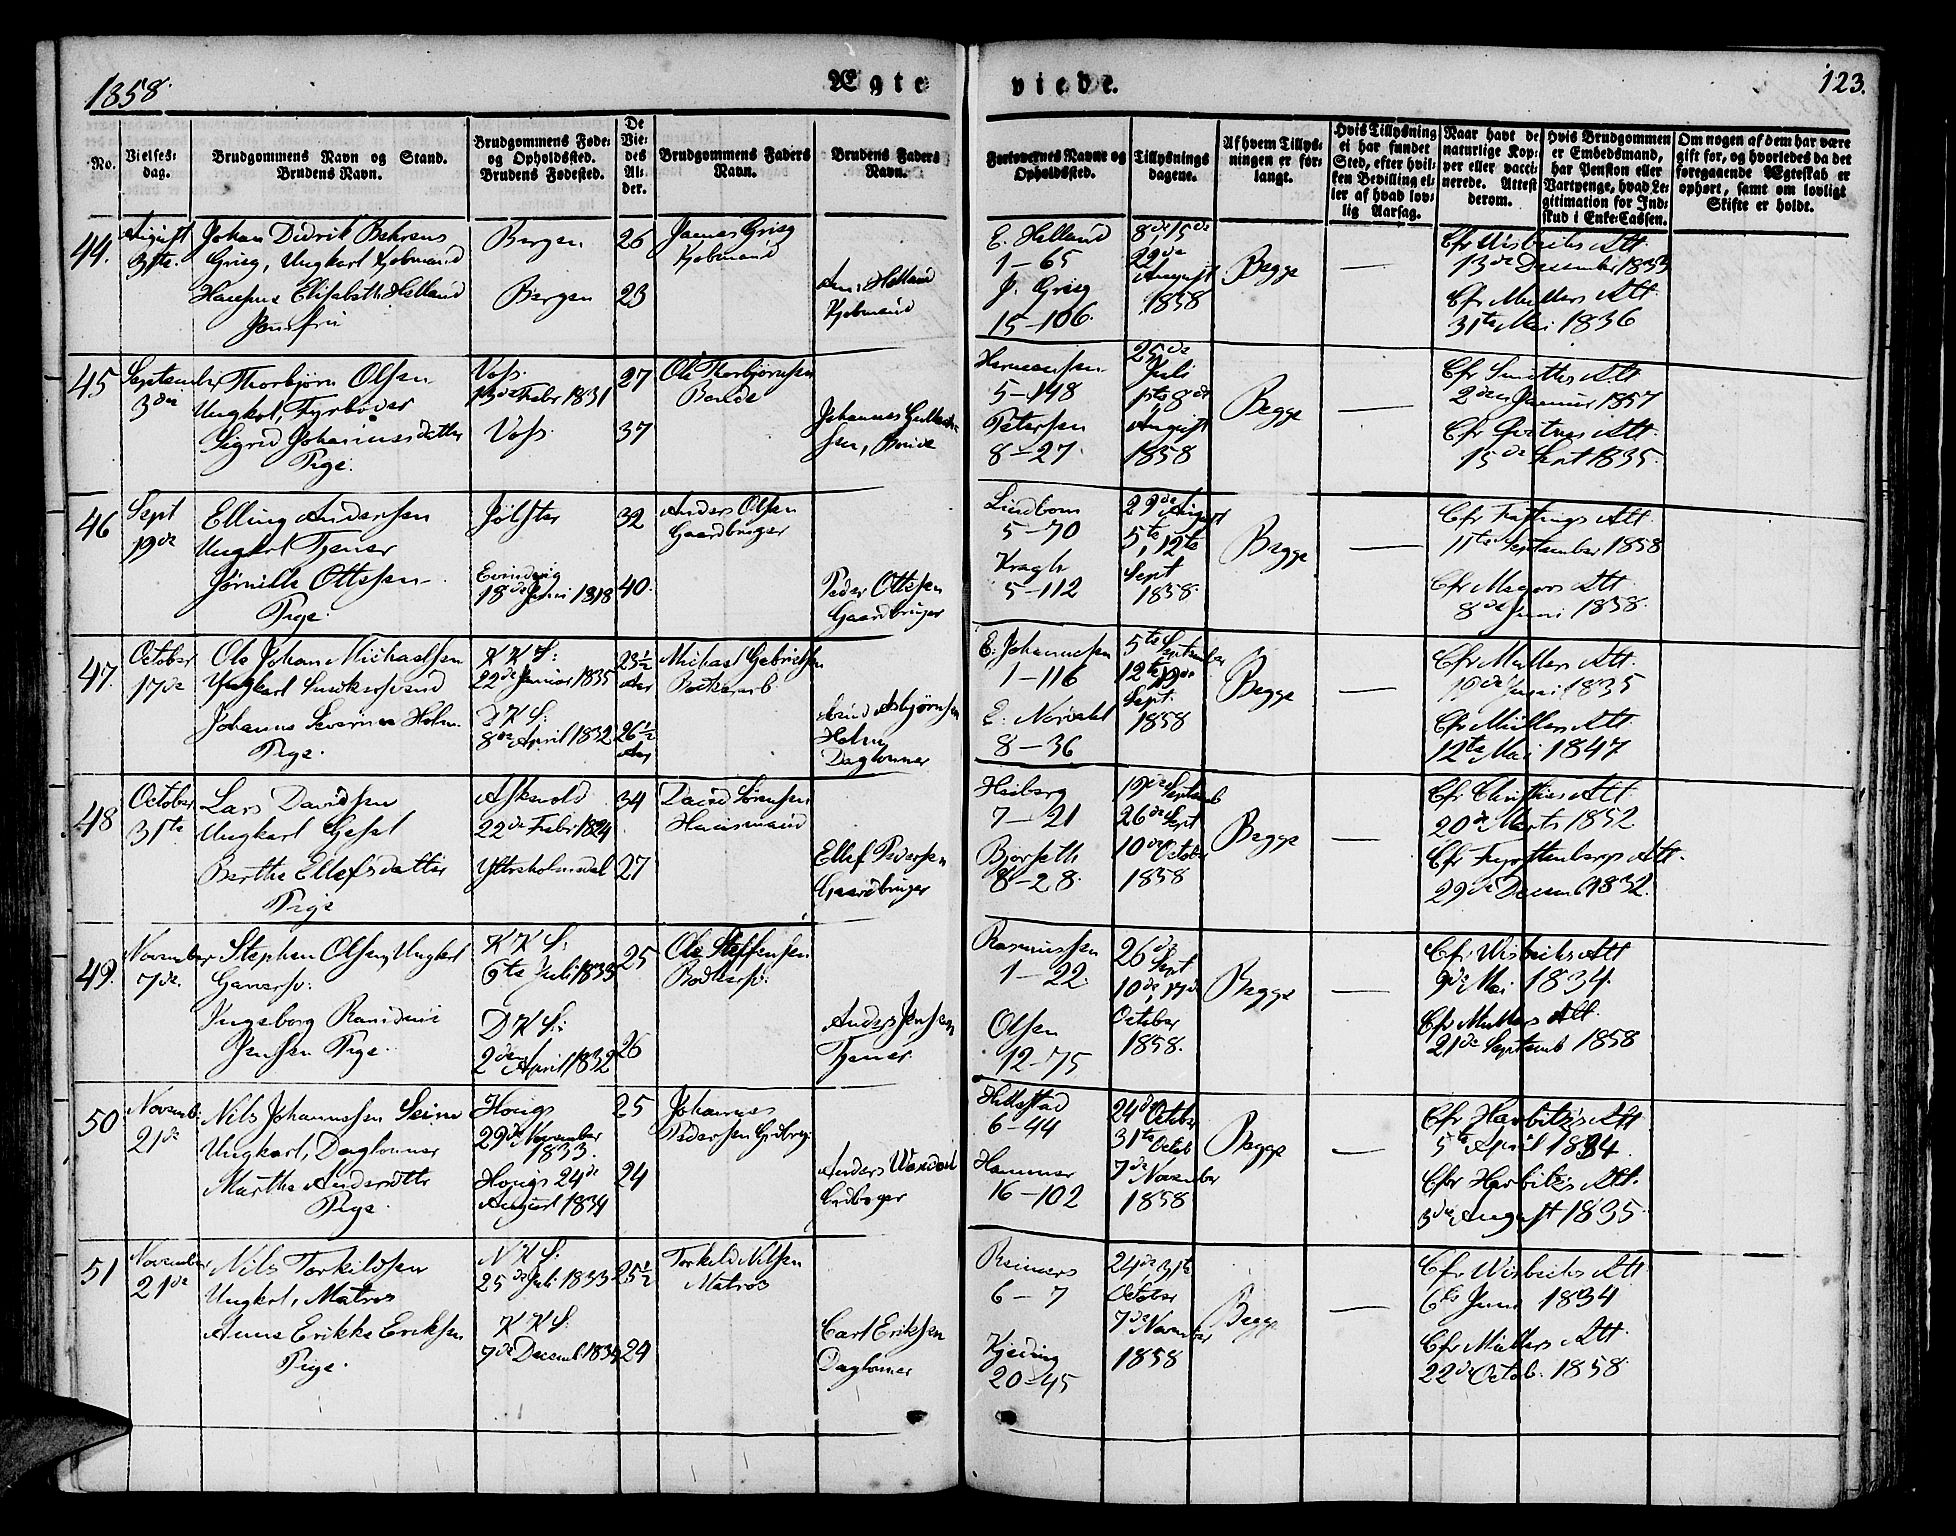 1858.
Ægte
viede.
123.
No.
Vielses-
dag.
Brudgommens Navn og Stand.
Brudens Navn.
Brudgommens Føde-
og Opholdssted.
Brudens Fødested.
De
Vie-
des
Al-
der.
Brudgommens Faders
Navn.
Brudens Faders
Navn.
Forlovernes Navne og
Opholdssted.
Tillysnings
dagene.
Af hvem Tillys-
ningen er for-
langt.
Hvis Tillysning
ei har fundet
Sted, efter hvil-
ken Bevilling el-
ler af hvad lov-
lig Aarsag.
Naar havt de
naturlige Kop-
per eller vacci-
nerede. Attest
derom.
Hvis Brudgommen
er Embedsmand,
har Pension eller
Vartpenge, hvad Le-
gitimation for Ind-
skud i Enke-Cassen.
Om nogen af dem har være
gift for, og hvorledes da det
foregaaende Ægteskab er
ophørt, samt om lovligt
Skifte er holdt.
44.
August
31te.
Johan Didrik Behrens
Grieg, Ungkarl Kjøbmand
Elisabeth Helland
Jomfru
Bergen
Bergen
26
23
James Grieg
Kjøbmand
Helland
Kjøbmand
E. Helland
1-65
J. Grieg
15-106.
8de, 15de
22de
August
1858
Begge
—
Cfr Wisbechs Att
13de December 1833
Cfr Mullers Att.
31te Mai 1836
45
September
3die
Thorbjørn Olsen
Ungkarl, Fyrbøder
Sigrid Johannesdatter
Pige.
Voss.
13de Febr 1831
Voss.
27
37
Ole Thorbjørnsen
Bonde
Johannes
sen, Bonde
Hermansen
5-148
Petersen
8-27.
25de
Juli
1ste 8de
August
1858
Begge
—
Cfr Smiths Att
2den Januar 1857
Cfr Att.
15de Sept 1835.
46
Sept
19de
Elling Andersen
Ungkarl Tjener
Ottesen
Pige.
Jølster
Evindvig
18de Juni 1818
32
40.
Anders Olsen
Gaardbruger
Peder Ottesen
Gaardbruger
Lindbom
5-70
Kragh
5-112
29de August
5te, 12te
Sept
1858.
Begge
—
Cfr Att.
11te September 1858
Cfr Att
8de Juni 1858.
47.
October
17de
Ole Johan Michaelsen
Ungkarl
Johanne Severine Holm
Pige.
K K S:
22de Januar 1835
D K S:
8de April 1832
23½
Aar
26½
Aar
Michael Gabrielsen
Asbjørnsen
Holm
Dagloner
E. Johannesen
1-116
E.
8-36
5te September
12te 19de
Sept:
1858
Begge
—
Cfr Mullers Att.
19de Juni 1835
Cfr Müllers Att
12te Mai 1847
48
October
31te
Lars Davidsen
Ungkarl Gesel
Berthe Ellefsdatter
Pige
Askevold
22de Febr 1824
Ytreholmedal
34
27
David Sørensen
Huusmand
Ellef Pedersen
Gaardbruger
Heiberg
7-21
Bjorseth
8-28.
19de Septemb
26de Sept
10de October
1858
Begge
—
Cfr Christies Att
20de Marts 1852
Cfr Att.
29de Decemb 1832.
49.
November
7de.
Stephen Olsen, Ungkarl
Ingeborg
Jensen Pige.
K K S:
6te Juli 1833
D K S:
2den April 1832
25
26
Ole Steffensen
Bodkersv:
Anders Jensen
Tjener
Rasmussen
1-22.
Olsen
12-75
26de
Sept
10de, 17de
October
1858.
Begge
—
Cfr Wisbechs Att
9de Mai 1834.
Cfr Mullers Att.
21de Septemb 1858
50
Novemb:
21de
Nils Johannesen Seim
Ungkarl, Dagloner
Marthe Andersdtr
Pige.
Houg
29de November
1833.
Houg 24de
August 1834
25
24
Johannes
Pedersen
Anders
Hillestad
6-44
Hammer
16-102
24de October
31te Octob
7de November
1858
Begge
—
Cfr Harbitz's Att
5te April 1834.
Cfr Harbitz's Att.
3die August 1835.
51
November
21de
Nils Torkildsen
Ungkarl, Matros
Anne Erikke Eriksen
Pige.
N K S:
25de Juli 1833
K K S:
7de Decemb 1834
25½
24
Torkild Nilsen
Matros
Carl Eriksen
Dagloner
Reimers
6-7
Kjeding
20-45
24de 31te
October
7de November
1858
Begge
—
Cfr Wisbechs Att
6te Juni 1834
Cfr Müllers Att.
22de Octob. 1858